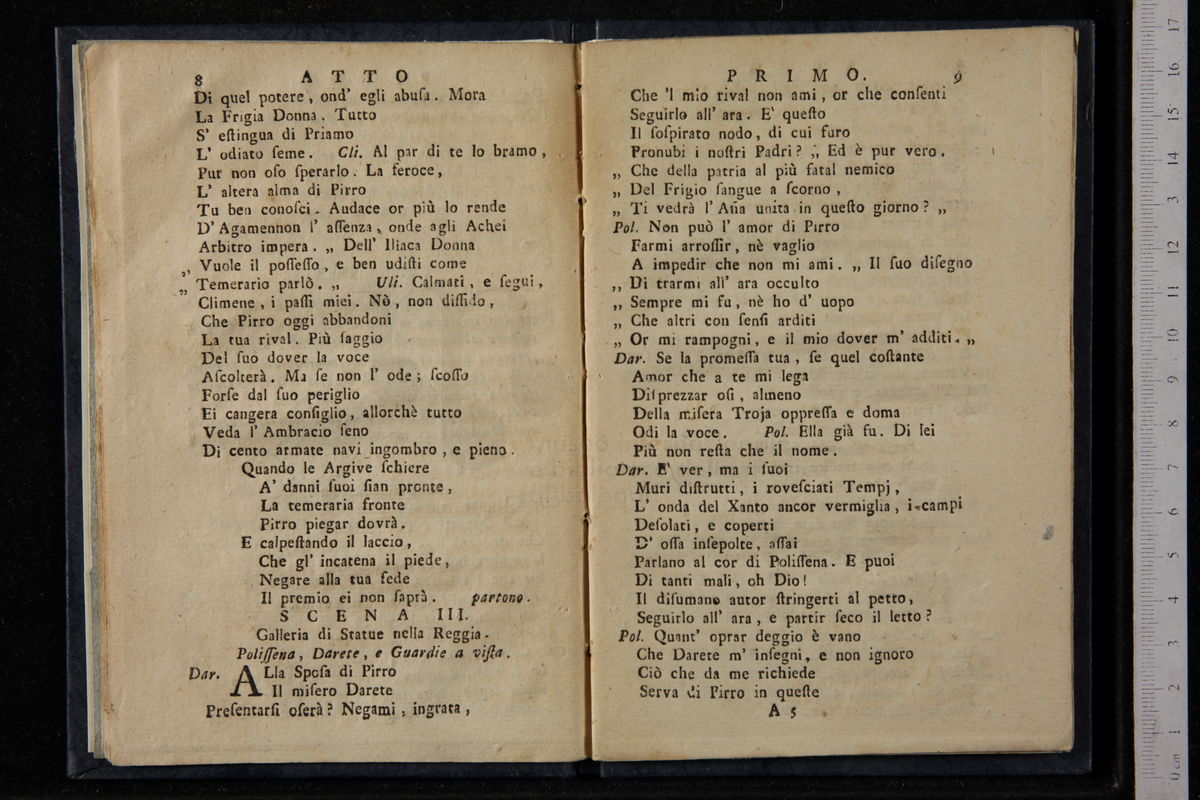 8 ATTO
Di quel potere, ond' egli abuſa. Mora
La Frigia Donna. Tutto
S' eſtingua di Priamo
L' odiato ſeme. Cli. Al par di te lo bramo,
Pur non oſo ſperarlo. La feroce,
L' altera alma di Pirro
Tu ben conoſci. Audace or più lo rende
D' Agamennon l' aſſenza, onde agli Achei
Arbitro impera. „ Dell' Iliaca Donna
„ Vuole il poſſeſſo, e ben udiſti come
„ Temerario parlò. „ Uli. Calmati, e ſegui,
Climene, i paſſi miei. Nò, non diffido,
Che Pirro oggi abbandoni
La tua rival. Più ſaggio
Del ſuo dover la voce
Aſcolterà. Ma ſe non l' ode; ſcoſſo
Forſe dal ſuo periglio
Ei cangera conſiglio, allorchè tutto
Veda l' Ambracio ſeno
Di cento armate navi ingombro, e pieno.
Quando le Argive ſchiere
A' danni ſuoi ſian pronte,
La temeraria fronte
Pirro piegar dovrà.
E calpeſtando il laccio,
Che gl' incatena il piede,
Negare alla tua fede
Il premio ei non ſaprà. partono.
SCENA III.
Galleria di Statue nella Reggia.
Poliſſena, Darete, e Guardie a viſta.
Dar. ALla Spoſa di Pirro
Il miſero Darete
Preſentarſi oſerà? Negami, ingrata,
PRIMO. 9
Che 'l mio rival non ami, or che conſenti
Seguirlo all' ara. E' queſto
Il ſoſpirato nodo, di cui furo
Pronubi i noſtri Padri? „ Ed è pur vero.
„ Che della patria al più fatal nemico
„ Del Frigio ſangue a ſcorno,
„ Ti vedrà l' Aſia unita in queſto giorno? „
Pol. Non può l' amor di Pirro
Farmi arroſſir, nè vaglio
A impedir che non mi ami. „ Il ſuo diſegno
„ Di trarmi all' ara occulto
„ Sempre mi fu, nè ho d' uopo
„ Che altri con ſenſi arditi
„ Or mi rampogni, e il mio dover m' additi. „
Dar. Se la promeſſa tua, ſe quel coſtante
Amor che a te mi lega
Diſprezzar oſi, almeno
Della miſera Troja oppreſſa e doma
Odi la voce. Pol. Ella già fu. Di lei
Più non reſta che il nome.
Dar. E' ver, ma i ſuoi
Muri diſtrutti, i roveſciati Tempj,
L' onda del Xanto ancor vermiglia, i campi
Deſolati, e coperti
D' oſſa inſepolte, aſſai
Parlano al cor di Poliſſena. E puoi
Di tanti mali, oh Dio!
Il diſumano autor ſtringerti al petto,
Seguirlo all' ara, e partir ſeco il letto?
Pol. Quant' oprar deggio è vano
Che Darete m' inſegni, e non ignoro
Ciò che da me richiede
Serva di Pirro in queſte
A 5
0 cm 1 2 3 4 5 6 7 8 9 10 11 12 13 14 15 16 17